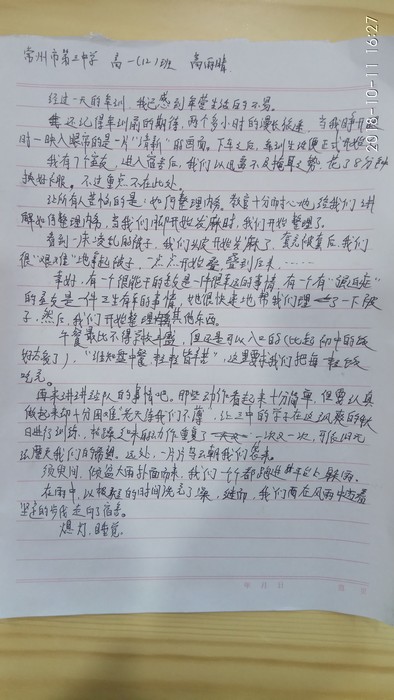 常州市第三中学 高一(12)班 高雨晴
2018-10-11 16:27
经过一天的军训,我已感到军营生活的不易。
我还记得军训前的期待,两个多小时的漫长征途,当我睁开
时映入眼帘的是一片"清新"的画面。下车之后,军训生活便正式开始
我有7个室友,进入宿舍后,我们以迅雷不及掩耳之势,花了8分钟
换好衣服。不过重点不在此处。
让所有人苦恼的是:如何整理内务。教官十分耐心地给我们讲
解如何整理内务,当我们开始发麻时,我们开始整理了。
看到一床凌乱的被子,我们头皮开始发麻了,套完被套后,我们
很"艰难"地拿起被子,一点点开始叠,叠到后来……
幸好,有一个很能干的室友是一件很幸运的事情,有一个有"强迫症"
的室友是一件三生有幸的事情,她很快速地帮我们理了一下被
子,然后,我们开始整理其他东西。
午餐虽比不得家中做,但还是可以入口的(比起初中的饭
好太多了),"谁知盘中餐,粒粒皆辛苦",这里要求我们把每一粒饭
吃完。
再来讲讲站队的事情吧。那些动作看起来十分简单,但要认真
做起来却十分困难,老天待我们不薄,让三中的学子在这凉爽的秋
日进行训练,
远处,一片片乌云朝我们袭来。
须臾间,倾盆大雨扑面而来,我们一个个都跑进 躲雨。
在雨中,以极短的时间洗完了澡,继而,我们而在风雨中迈着
坚定的步伐走向了宿舍。
熄灯,睡觉。
年 月 日